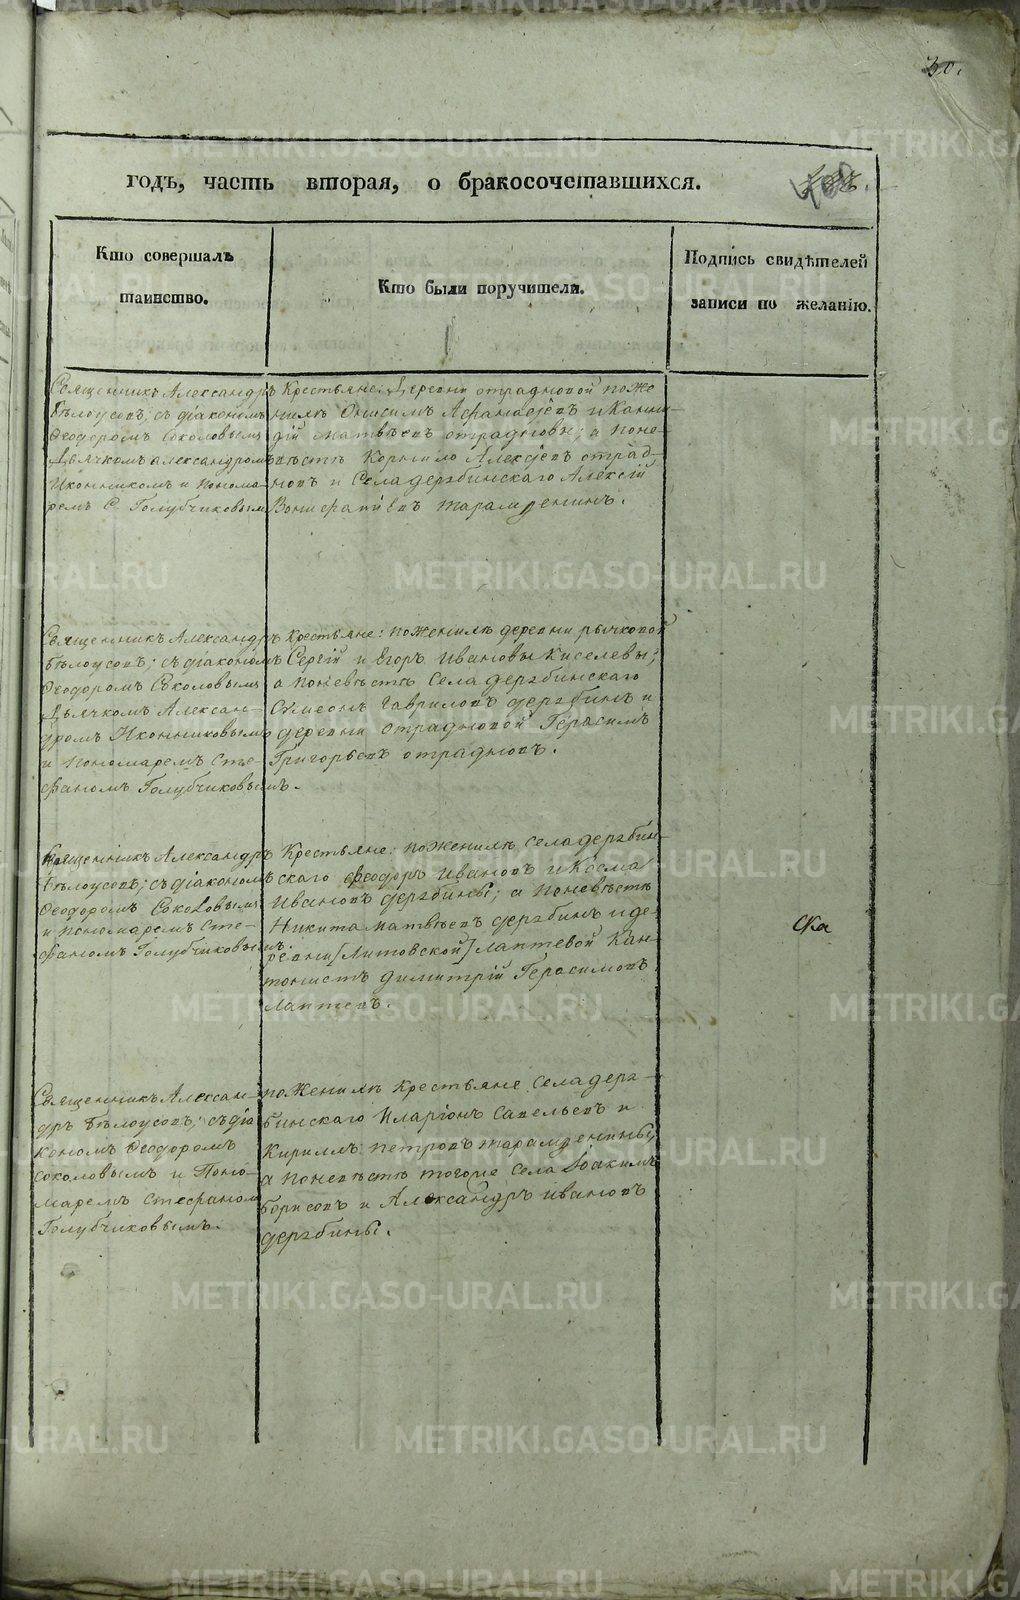 30.
годъ, часть вторая, о бракосочетавшихся.
Кто совершалъ
таинство.
Кто были поручители.
Подпись свидѣтелей
записи по желанію.
Священникъ Александръ
Бѣлоусовъ; съ діакономъ
Феодоромъ Соколовымъ
Дьячкомъ Александромъ
Иконникомъ и Понома-
ремъ С. Голубчиковымъ
Крестьяне: Деревни отрадновой по же-
нихѣ Онисимъ Афанасьевъ и
дій Матвѣевъ отрадновы; а поне-
вѣстѣ Корнило Алексѣевъ отрад-
новъ и Села дерябинскаго Алексій
Вонифатіевъ
Священникъ Александръ
Бѣлоусовъ; съ діакономъ
Феодоромъ Соколовымъ
Дьячкомъ Алексан-
дромъ Иконниковымъ
и пономаремъ Сте-
фаномъ Голубчиковымъ.
Крестьяне: по женихѣ деревни рычковой
Сергій и Егоръ Ивановы Киселевы;
а поневѣстѣ Села дерябинскаго
Сѵмеонъ Гавриловъ дерябинъ и
деревни отрадновой Герасимъ
Григорьевъ отрадновъ.
Священникъ Александръ
Бѣлоусовъ; съ діакономъ
Феодоромъ Соколовымъ
и пономаремъ Сте-
фаномъ Голубчиковымъ.
Крестьяне: по женихѣ Села дерябин-
скаго Феодоръ Ивановъ и Косма
Ивановъ дерябины; а поневѣстѣ
Никита Матвѣевъ дерябинъ и де-
ревни [Литовской] лаптевой Кан-
тонистъ Димитрій Герасимовъ
Лаптевъ.
Священникъ Алексан-
дръ Бѣлоусовъ; съ діа
кономъ Феодоромъ
Соколовымъ и Поно-
маремъ Стефаномъ
Голубчиковымъ.
по женихѣ Крестьяне Села деря-
бинскаго Иларіонъ Савельевъ и
Кириллъ Петровъ
а поневѣстѣ тогоже Села Іоакимъ
борисовъ и Александръ Ивановъ
дерябины.
METRIKI.GASO-URAL.RU